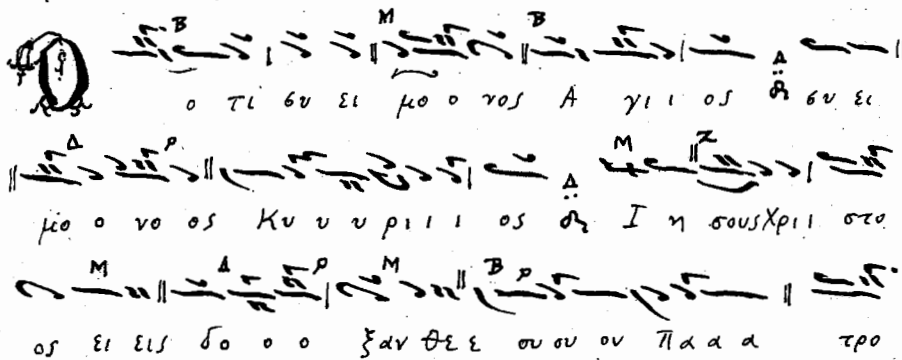 Ο ο τι συ ει μο ο νος Α γι ι ος συ ει
μο ο νο ος Κυ υ υ ρι ι ι ος Ι η σους Χρι ι στο
ος ει εις δο ο ο ξαν θε ε ου ου ον Πα α α τρο